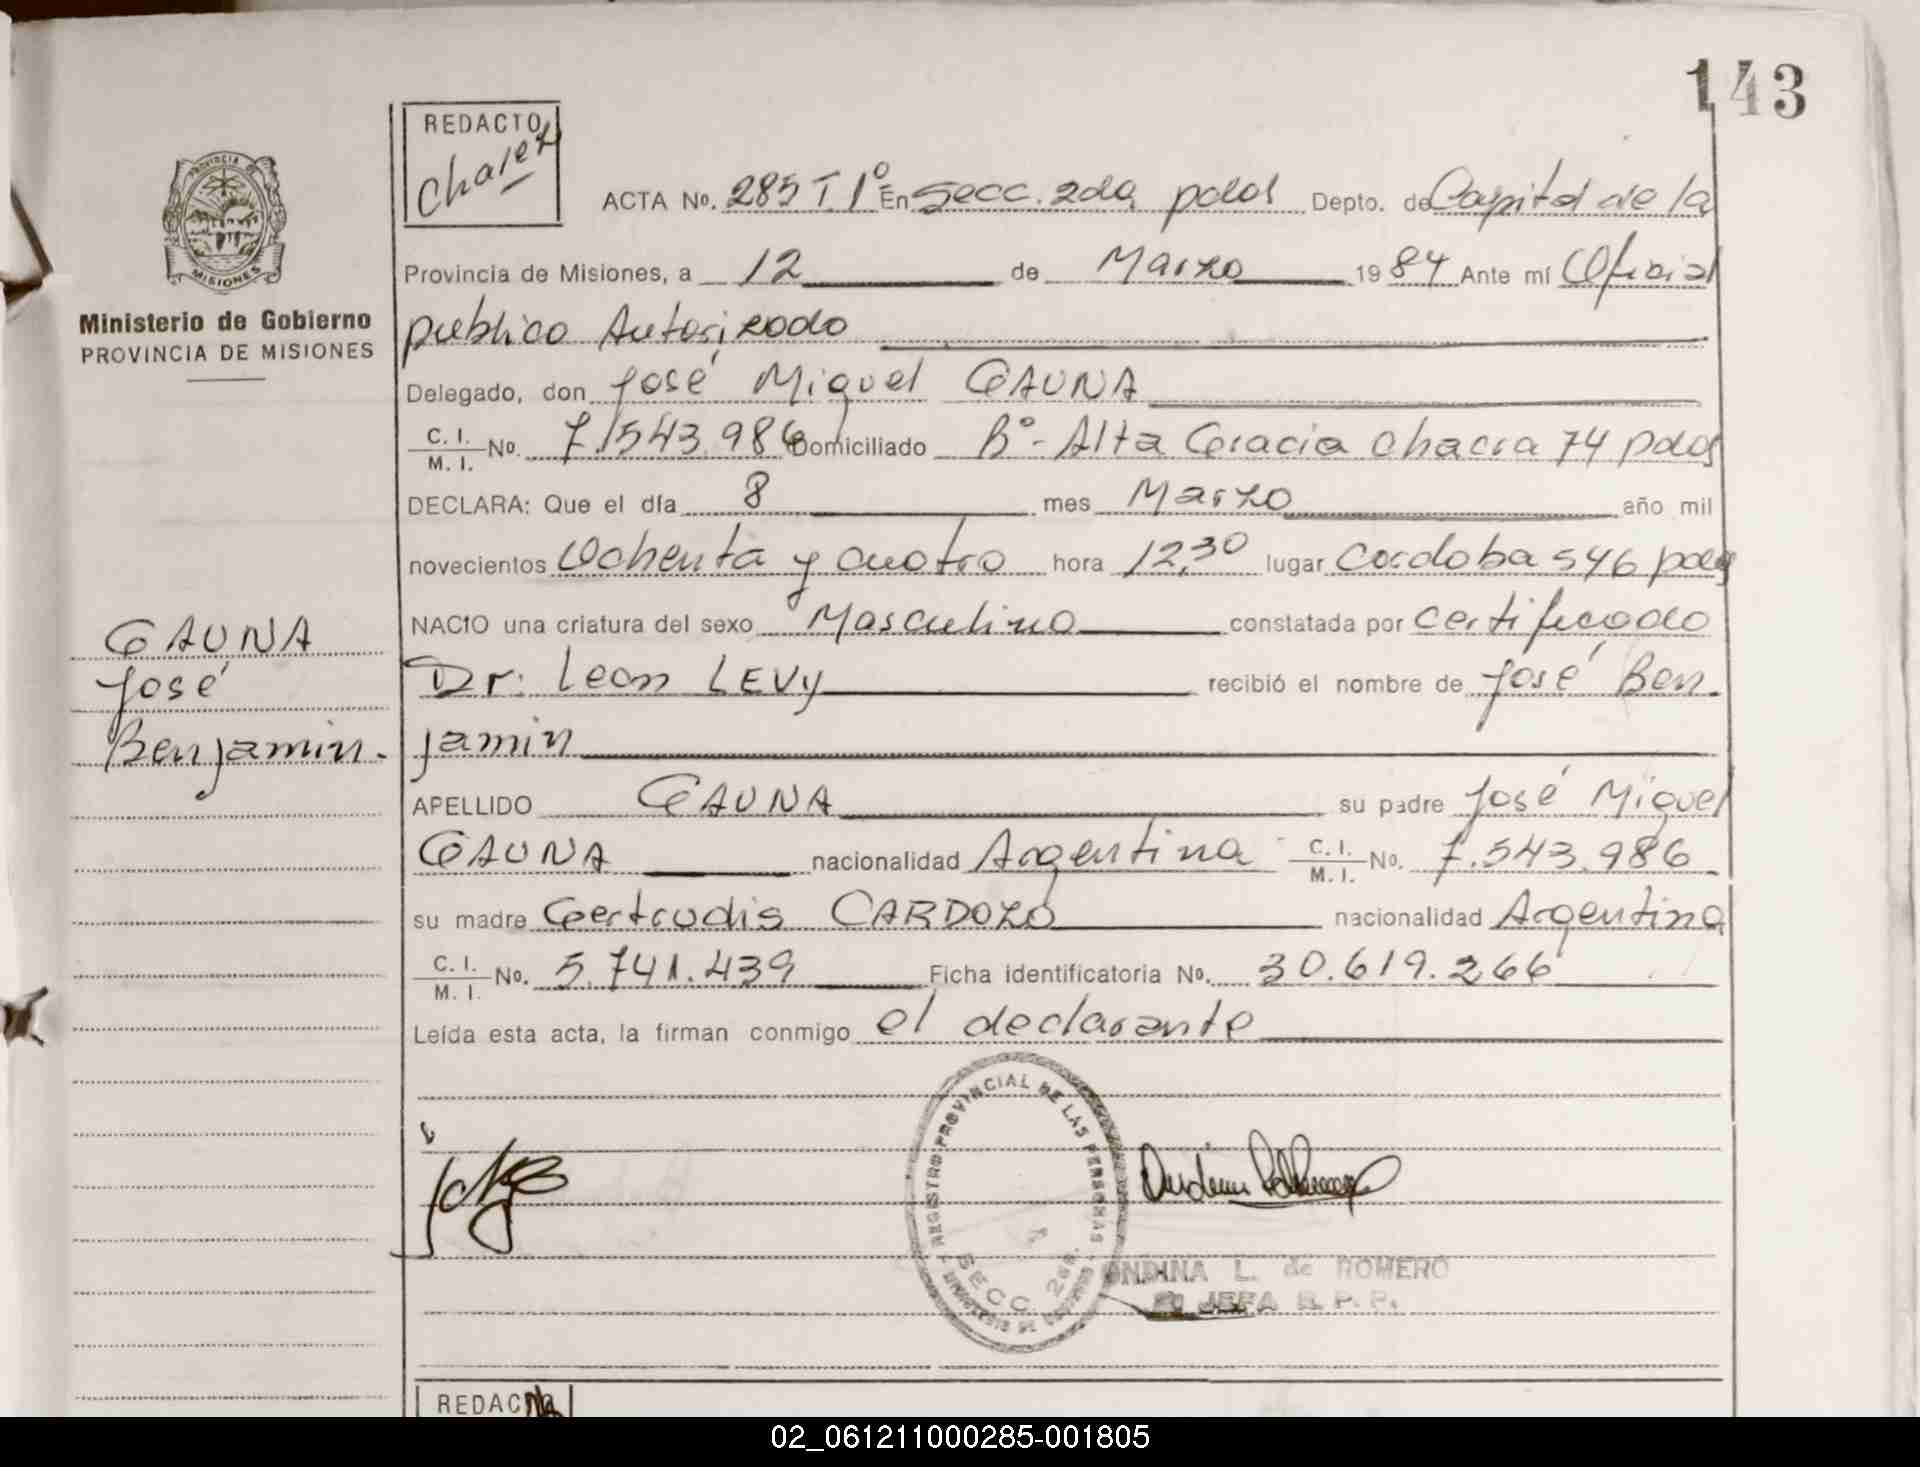 143
REDACTO
PROVINCIA DE
MISIONES
Ministerio de Gobierno
PROVINCIA DE MISIONES
ACTA No. 285 T 1º En Secc. 2da pdas Depto. de Capital de la
Provincia de Misiones, a 12 de Marzo 1984 Ante mí Oficial
publico Autorizado
Delegado, don José Miguel GAUNA
C. I. / M. I. No. 7.543.986 Domiciliado Bº- Alta Gracia chacra 74 pdas
DECLARA: Que el día 8 mes Marzo año mil
novecientos Ochenta y cuatro hora 12,30 lugar Cordoba 546 pdas
NACIO una criatura del sexo Masculino constatada por certificado
Dr. Leon LEVY recibió el nombre de José Ben-
jamin
GAUNA
José
Benjamin.
APELLIDO GAUNA su padre José Miguel
GAUNA nacionalidad Argentina C. I. / M. I. No. 7.543.986
su madre Gertrudis CARDOZO nacionalidad Argentina
C. I. / M. I. No. 5.741.439 Ficha identificatoria No. 30.619.266
Leída esta acta, la firman conmigo el declarante
REGISTRO PROVINCIAL DE LAS PERSONAS
MINISTERIO DE GOBIERNO
SECC 2da.
ONDINA L. de ROMERO
JEFA R. P. P.
REDACTO
02_061211000285-001805